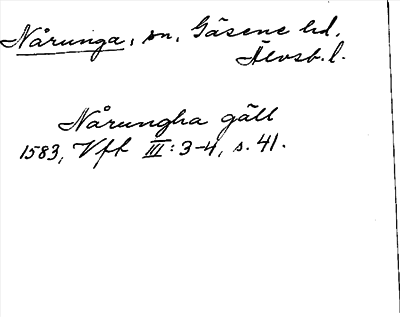 Nårunga, sn, Gäsene hd.
Älvsb. l.
Nårungha gäll
1583, Vft III: 3-4, s. 41.